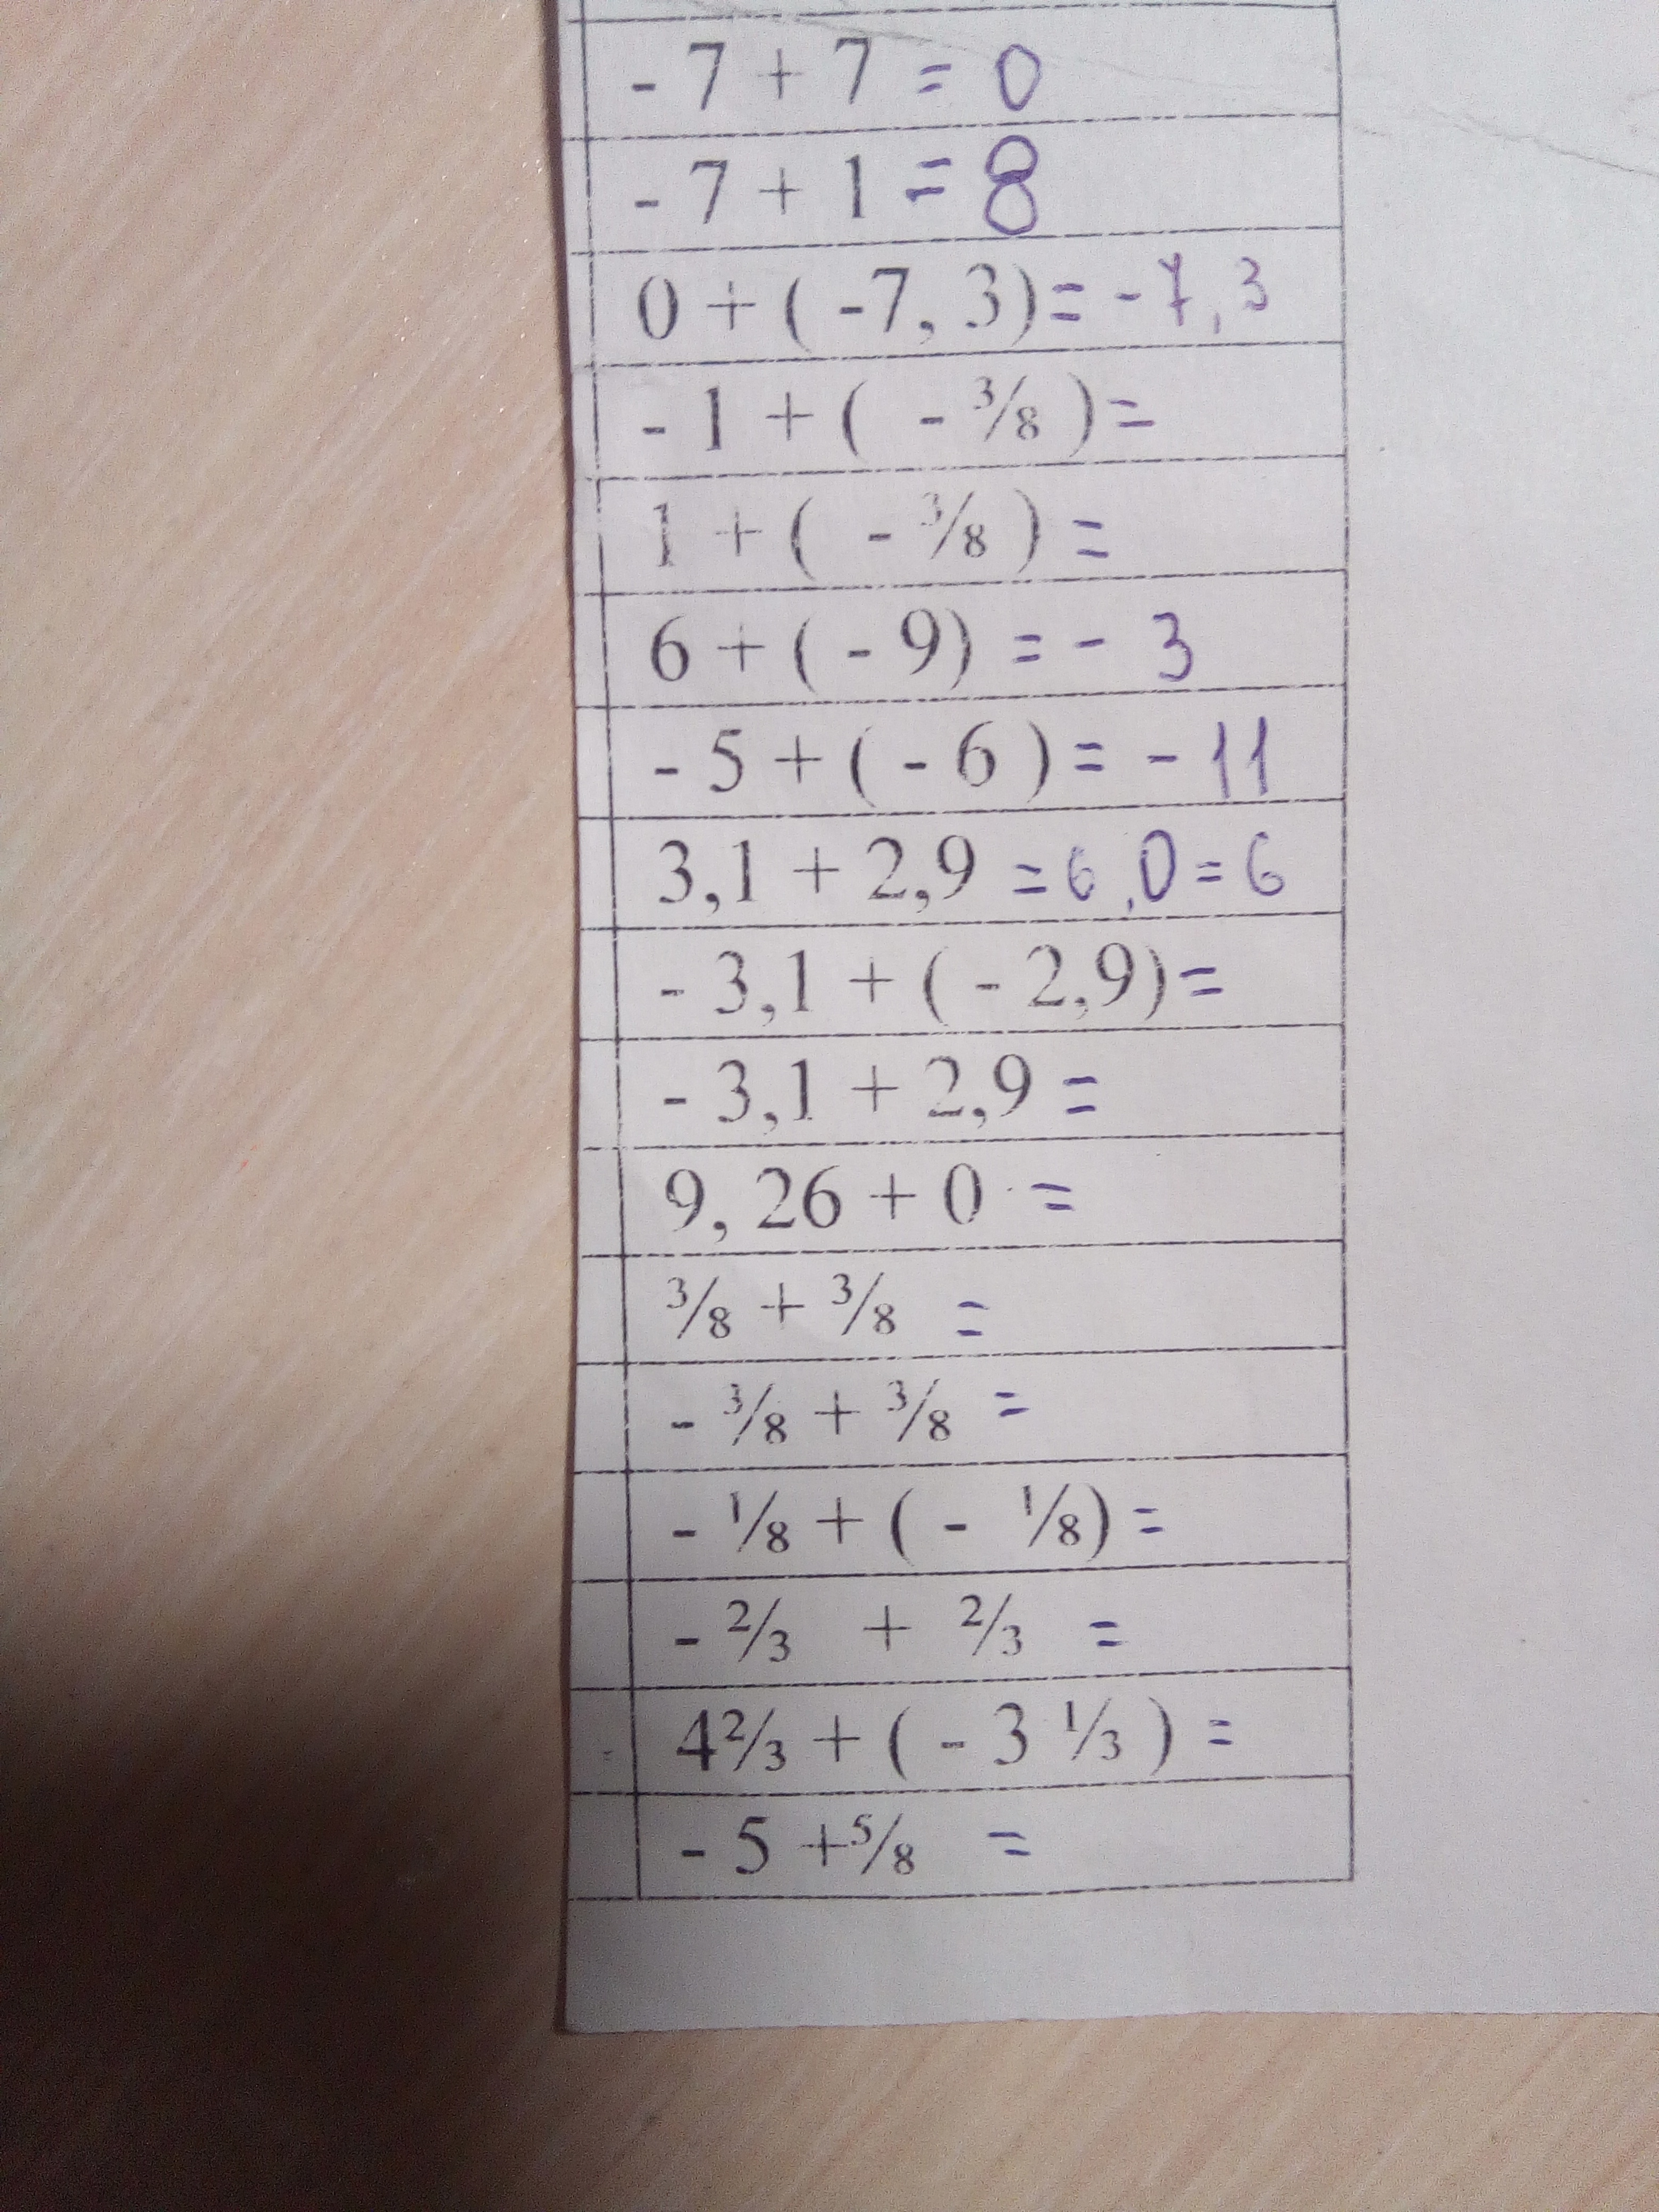 - 7 + 7 = 0
- 7 + 1 = 8
0 + ( -7, 3) = - 7, 3
- 1 + ( - ³⁄₈ ) =
1 + ( - ³⁄₈ ) =
6 + ( - 9) = - 3
- 5 + ( - 6 ) = - 11
3,1 + 2,9 = 6,0 = 6
- 3,1 + ( - 2,9) =
- 3,1 + 2,9 =
9, 26 + 0 =
³⁄₈ + ³⁄₈ =
- ³⁄₈ + ³⁄₈ =
- ¹⁄₈ + ( - ¹⁄₈) =
- ²⁄₃ + ²⁄₃ =
4²⁄₃ + ( - 3 ¹⁄₃ ) =
- 5 +⁵⁄₈ =